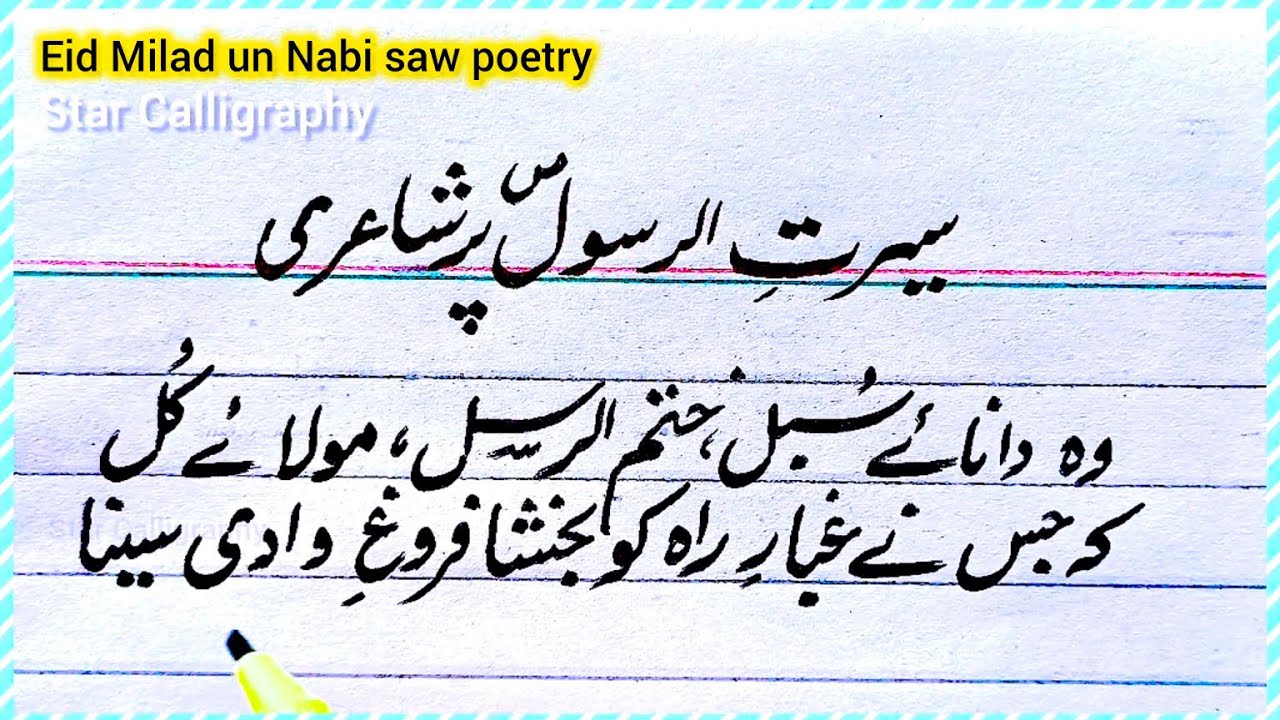 Eid Milad un Nabi saw poetry
Star Calligraphy
سیرتِ الرسولؐ پر شاعری
وہ دانائے سُبل، ختم الرسل، مولائے کُل
کہ جس نے غبارِ راہ کو بخشا فروغِ وادی سینا
Star Calligraphy